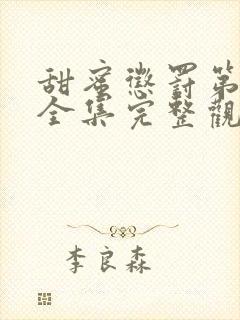 甜蜜懲罰第
全集完整觀
李良森